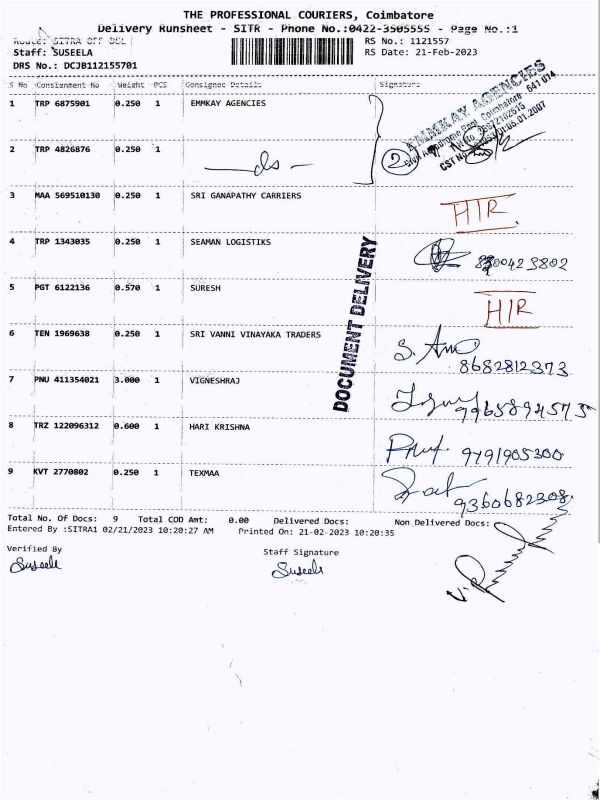 THE PROFESSIONAL COURIERS, Coimbatore
Delivery Runsheet - SITR - Phone No.:0422-3505555 - Page No.:1
Route: SITRA OFF DEL
RS No.: 1121557
Staff: SUSEELA
RS Date: 21-Feb-2023
DRS No.: DCJB112155701
S No Consignment No Weight PCS Consignee Details Signature
1 TRP 6875901 0.250 1 EMMKAY AGENCIES
AMMKAY AGENCIES
2 TRP 4826876 0.250 1 — do —
2
3 MAA 569510130 0.250 1 SRI GANAPATHY CARRIERS HIR
4 TRP 1343035 0.250 1 SEAMAN LOGISTIKS
5 PGT 6122136 0.570 1 SURESH HIR
DOCUMENT DELIVERY
6 TEN 1969638 0.250 1 SRI VANNI VINAYAKA TRADERS
8682812373
7 PNU 411354021 3.000 1 VIGNESHRAJ 9965894575
8 TRZ 122096312 0.600 1 HARI KRISHNA 9791905300
9 KVT 2770802 0.250 1 TEXMAA 9360682308
Total No. Of Docs: 9 Total COD Amt: 0.00 Delivered Docs: Non Delivered Docs:
Entered By :SITRA1 02/21/2023 10:20:27 AM Printed On: 21-02-2023 10:20:35
Verified By Staff Signature
Suseela Suseela